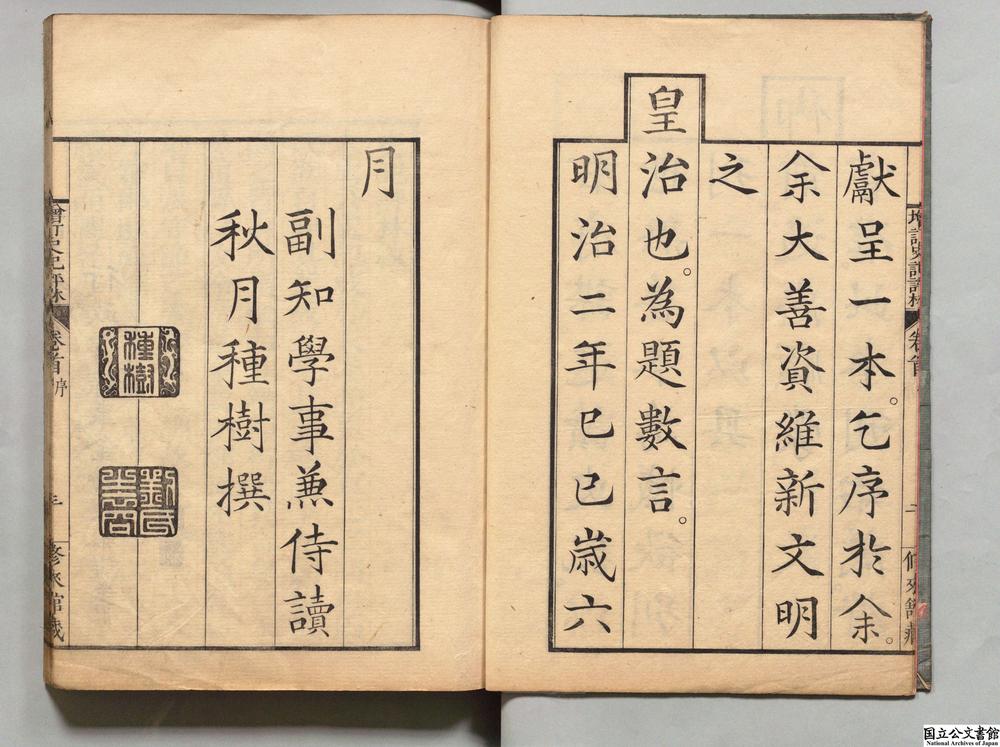 獻呈一本。乞序於余。
余大善資維新文明
之
皇治也。為題數言。
明治二年己巳歲六
月
副知學事兼侍讀
秋月種樹撰
種樹
增訂史記評林
卷首
二
修來館藏
增訂史記評林
卷首
序
三
修來館藏
国立公文書館
National Archives of Japan